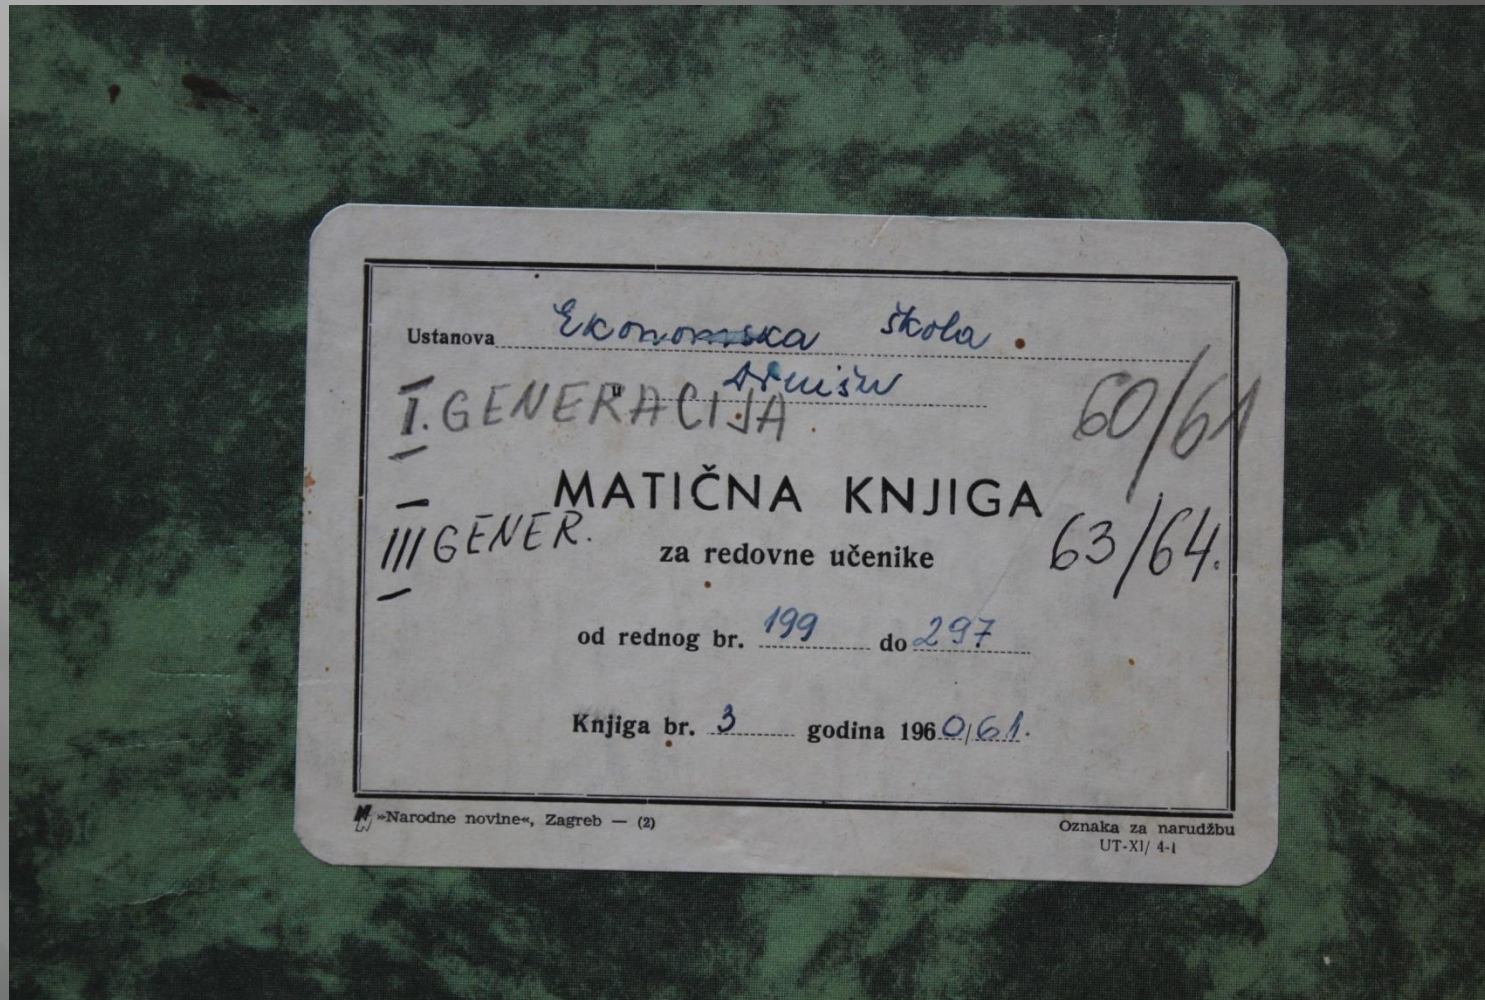 Ustanova Ekonomska škola
u Drnišu
I. GENERACIJA 60/61
MATIČNA KNJIGA
III GENER. 63/64.
za redovne učenike
od rednog br. 199 do 297
Knjiga br. 3 godina 1960/61.
»Narodne novine«, Zagreb — (2)
Oznaka za narudžbu
UT-XI/ 4-1